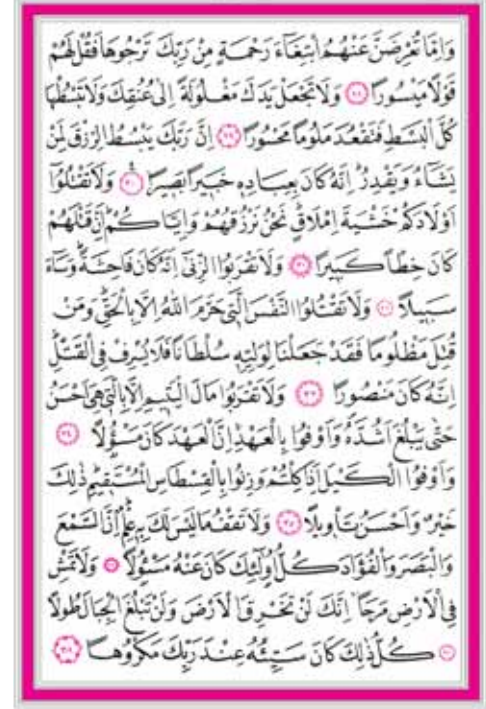 وَاِمَّا تُعْرِضَنَّ عَنْهُمُ ابْتِغَٓاءَ رَحْمَةٍ مِنْ رَبِّكَ تَرْجُوهَا فَقُلْ لَهُمْ
قَوْلًا مَيْسُورًا ﴿٢٨﴾ وَلَا تَجْعَلْ يَدَكَ مَغْلُولَةً اِلٰى عُنُقِكَ وَلَا تَبْسُطْهَا
كُلَّ الْبَسْطِ فَتَقْعُدَ مَلُومًا مَحْسُورًا ﴿٢٩﴾ اِنَّ رَبَّكَ يَبْسُطُ الرِّزْقَ لِمَنْ
يَشَٓاءُ وَيَقْدِرُ اِنَّهُ كَانَ بِعِبَادِهِ خَبِيرًا بَصِيرًا ﴿٣٠﴾ وَلَا تَقْتُلُٓوا
اَوْلَادَكُمْ خَشْيَةَ اِمْلَاقٍ نَحْنُ نَرْزُقُهُمْ وَاِيَّاكُمْ اِنَّ قَتْلَهُمْ
كَانَ خِطْـًٔا كَبِيرًا ﴿٣١﴾ وَلَا تَقْرَبُوا الزِّنٰٓى اِنَّهُ كَانَ فَاحِشَةً وَسَٓاءَ
سَبِيلًا ﴿٣٢﴾ وَلَا تَقْتُلُوا النَّفْسَ الَّتِي حَرَّمَ اللّٰهُ اِلَّا بِالْحَقِّ وَمَنْ
قُتِلَ مَظْلُومًا فَقَدْ جَعَلْنَا لِوَلِيِّهِ سُلْطَانًا فَلَا يُسْرِفْ فِي الْقَتْلِ
اِنَّهُ كَانَ مَنْصُورًا ﴿٣٣﴾ وَلَا تَقْرَبُوا مَالَ الْيَتِيمِ اِلَّا بِالَّتِي هِيَ اَحْسَنُ
حَتّٰى يَبْلُغَ اَشُدَّهُ وَاَوْفُوا بِالْعَهْدِ اِنَّ الْعَهْدَ كَانَ مَسْؤُ۫لًا ﴿٣٤﴾
وَاَوْفُوا الْكَيْلَ اِذَا كِلْتُمْ وَزِنُوا بِالْقِسْطَاسِ الْمُسْتَقِيمِ ذٰلِكَ
خَيْرٌ وَاَحْسَنُ تَأْوِيلًا ﴿٣٥﴾ وَلَا تَقْفُ مَا لَيْسَ لَكَ بِهِ عِلْمٌ اِنَّ السَّمْعَ
وَالْبَصَرَ وَالْفُؤَادَ كُلُّ اُو۬لٰٓئِكَ كَانَ عَنْهُ مَسْؤُ۫لًا ﴿٣٦﴾ وَلَا تَمْشِ
فِي الْاَرْضِ مَرَحًا اِنَّكَ لَنْ تَخْرِقَ الْاَرْضَ وَلَنْ تَبْلُغَ الْجِبَالَ طُولًا
﴿٣٧﴾ كُلُّ ذٰلِكَ كَانَ سَيِّئُهُ عِنْدَ رَبِّكَ مَكْرُوهًا ﴿٣٨﴾